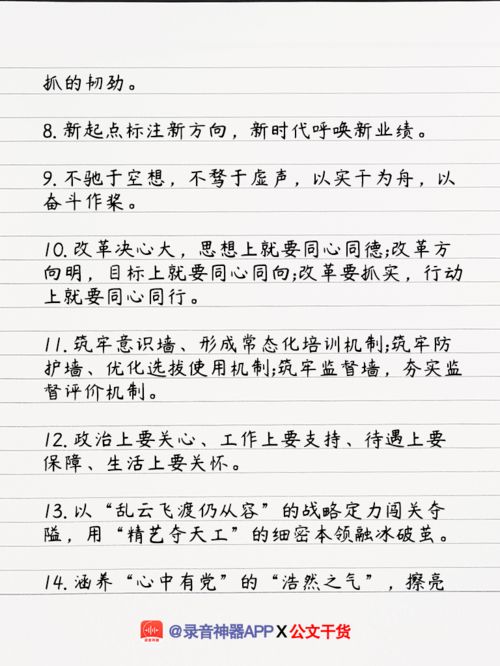 抓的韧劲。
8. 新起点标注新方向，新时代呼唤新业绩。
9. 不驰于空想，不骛于虚声，以实干为舟，以
奋斗作桨。
10. 改革决心大，思想上就要同心同德;改革方
向明，目标上就要同心同向;改革要抓实，行动
上就要同心同行。
11. 筑牢意识墙、形成常态化培训机制;筑牢防
护墙、优化选拔使用机制;筑牢监督墙，夯实监
督评价机制。
12. 政治上要关心、工作上要支持、待遇上要
保障、生活上要关怀。
13. 以“乱云飞渡仍从容”的战略定力闯关夺
隘，用“精艺夺天工”的细密本领融冰破茧。
14. 涵养“心中有党”的“浩然之气”，擦亮
录音神器 @录音神器APP X 公文干货